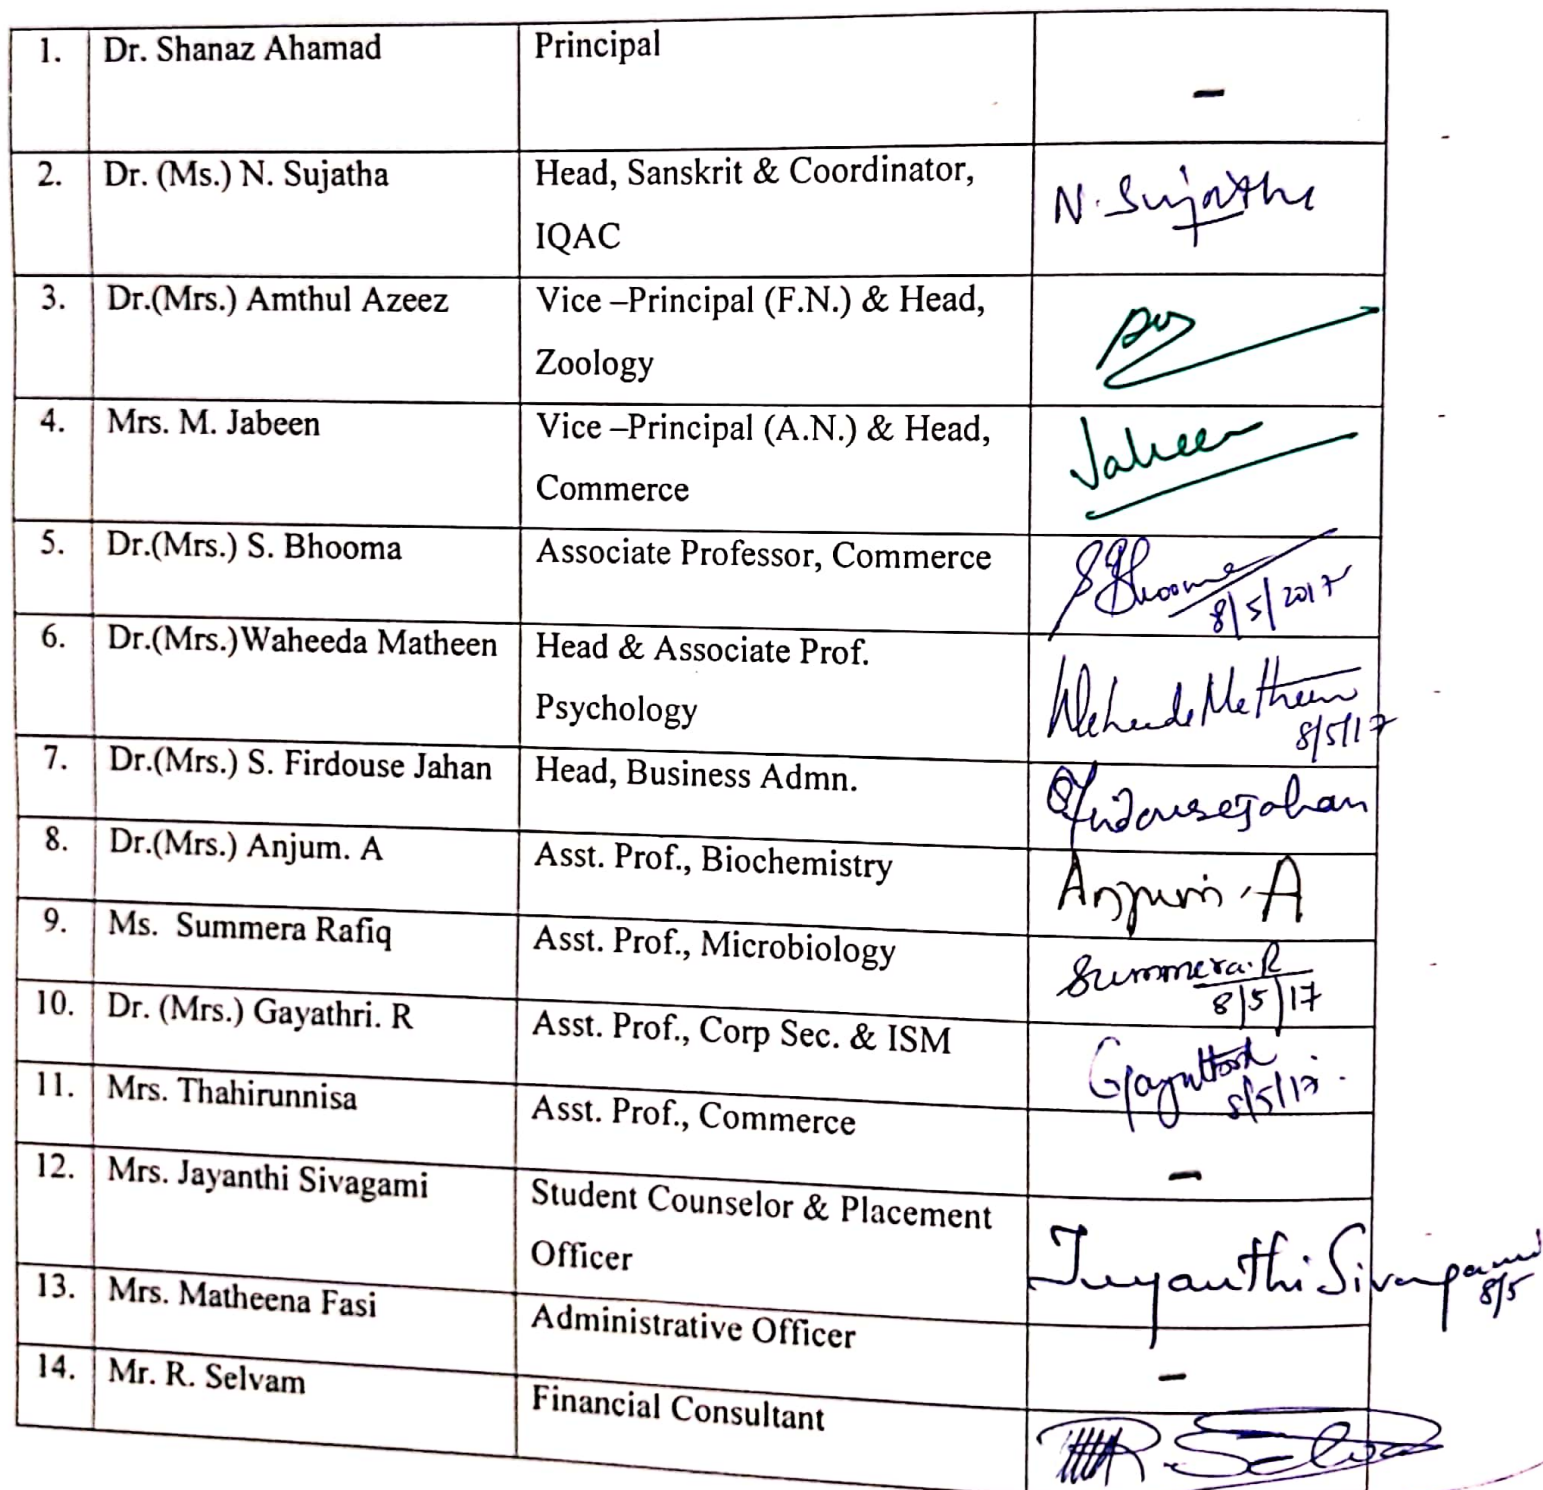 1. Dr. Shanaz Ahamad Principal –
2. Dr. (Ms.) N. Sujatha Head, Sanskrit & Coordinator, N. Sujatha
IQAC
3. Dr.(Mrs.) Amthul Azeez Vice –Principal (F.N.) & Head,
Zoology
4. Mrs. M. Jabeen Vice –Principal (A.N.) & Head, Jabeen
Commerce
5. Dr.(Mrs.) S. Bhooma Associate Professor, Commerce S Bhooma
8/5/2017
6. Dr.(Mrs.)Waheeda Matheen Head & Associate Prof. Waheeda Matheen
Psychology 8/5/17
7. Dr.(Mrs.) S. Firdouse Jahan Head, Business Admn. Firdouse Jahan
8. Dr.(Mrs.) Anjum. A Asst. Prof., Biochemistry Anjum. A
9. Ms. Summera Rafiq Asst. Prof., Microbiology Summera. R
8/5/17
10. Dr. (Mrs.) Gayathri. R Asst. Prof., Corp Sec. & ISM Gayathri
8/5/17.
11. Mrs. Thahirunnisa Asst. Prof., Commerce –
12. Mrs. Jayanthi Sivagami Student Counselor & Placement Jayanthi Sivagami
Officer 8/5
13. Mrs. Matheena Fasi Administrative Officer –
14. Mr. R. Selvam Financial Consultant R. Selvam